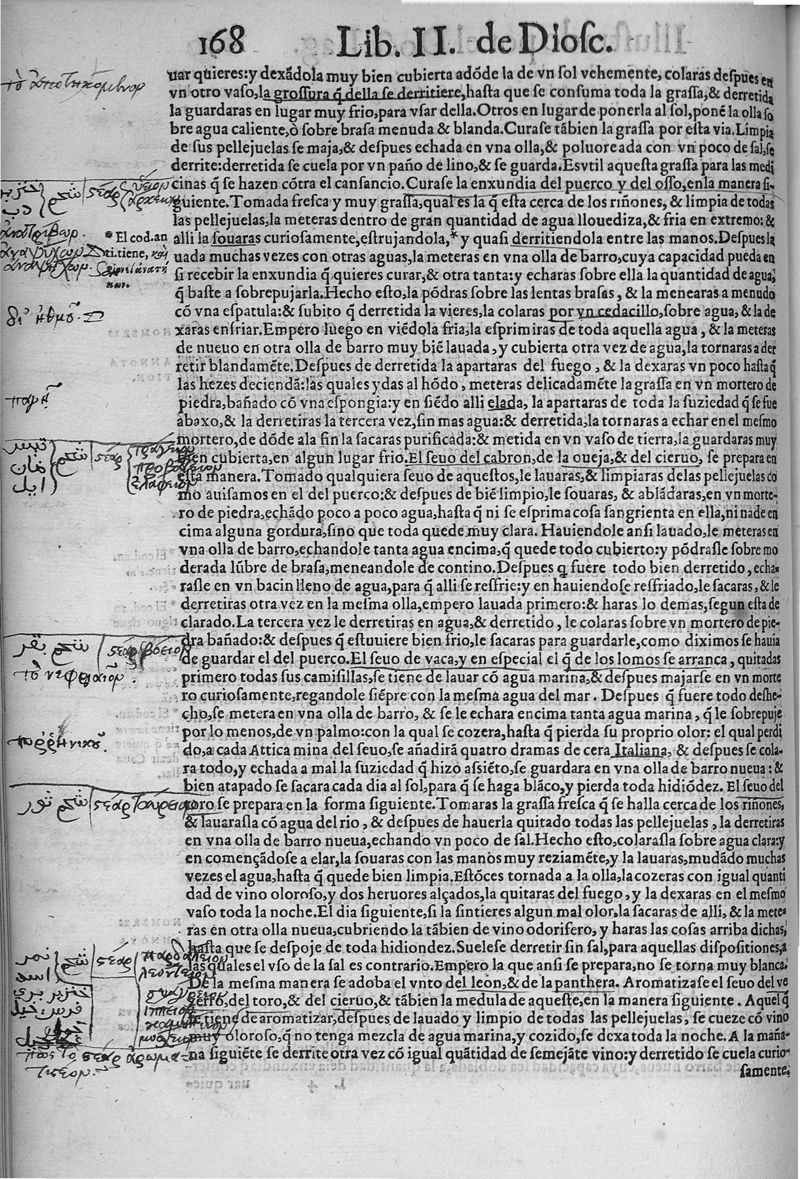 168 Lib. II. de Diosc.
uar quieres:y dexãdola muy bien cubierta adõde la de vn sol vehemente, colaras despues en
vn otro vaso, la grossura q̃ della se derritiere, hasta que se consuma toda la grassa, & derretida
la guardaras en lugar muy frio, para vsar della. Otros en lugar de ponerla al sol, ponẽ la olla so
bre agua caliente, ò sobre brasa menuda & blanda. Curase tãbien la grassa por esta via. Limpia
de sus pellejuelas se maja, & despues echada en vna olla, & poluoreada con vn poco de sal, se
derrite: derretida se cuela por vn paño de lino, & se guarda. Es vtil aquesta grassa para las medi
cinas q̃ se hazen cõtra el cansancio. Curase la enxundia del puerco y del osso, en la manera si-
guiente. Tomada fresca y muy grassa, qual es la q̃ esta cerca de los riñones, & limpia de todas
las pellejuelas, la meteras dentro de gran quantidad de agua llouediza, & fria en extremo: &
* El cod. an
alli la souaras curiosamente, estrujandola,* y quasi derritiendola entre las manos. Despues la
ti. tiene,
uada muchas vezes con otras aguas, la meteras en vna olla de barro, cuya capacidad pueda en
si recibir la enxundia q̃ quieres curar, & otra tanta: y echaras sobre ella la quantidad de agua,
q̃ baste a sobrepujarla. Hecho esto, la põdras sobre las lentas brasas, & la menearas a menudo
cõ vna espatula: & subito q̃ derretida la vieres, la colaras por vn cedacillo, sobre agua, & la de
xaras enfriar. Empero luego en viẽdola fria, la esprimiras de toda aquella agua, & la meteras
de nueuo en otra olla de barro muy biẽ lauada, y cubierta otra vez de agua, la tornaras a der
retir blandamẽte. Despues de derretida la apartaras del fuego, & la dexaras vn poco hasta q̃
las hezes deciendã: las quales ydas al hõdo, meteras delicadamẽte la grassa en vn mortero de
piedra, bañado cõ vna espongia: y en siẽdo alli elada, la apartaras de toda la suziedad q̃ se fue
abaxo, & la derretiras la tercera vez, sin mas agua: & derretida, la tornaras a echar en el mesmo
mortero, de dõde ala fin la sacaras purificada: & metida en vn vaso de tierra, la guardaras muy
bien cubierta, en algun lugar frio. El seuo del cabron, de la oueja, & del cieruo, se prepara en
esta manera. Tomado qualquiera seuo de aquestos, le lauaras, & limpiaras delas pellejuelas co
mo auisamos en el del puerco: & despues de biẽ limpio, le souaras, & ablãdaras, en vn morte-
ro de piedra, echãdo poco a poco agua, hasta q̃ ni se esprima cosa sangrienta en ella, ni nade en
cima alguna gordura, sino que toda quede muy clara. Hauiendole ansi lauado, le meteras en
vna olla de barro, echandole tanta agua encima, q̃ quede todo cubierto: y põdrasle sobre mo
derada lũbre de brasa, meneandole de contino. Despues q̃ fuere todo bien derretido, echa-
rasle en vn bacin lleno de agua, para q̃ alli se resfrie: y en hauiendose resfriado, le sacaras, & le
derretiras otra vez en la mesma olla, empero lauada primero: & haras lo demas, segun esta de
clarado. La tercera vez le derretiras en agua, & derretido, le colaras sobre vn mortero de pie-
dra bañado: & despues q̃ estuuiere bien frio, le sacaras para guardarle, como diximos se hauia
de guardar el del puerco. El seuo de vaca, y en especial el q̃ de los lomos se arranca, quitadas
primero todas sus camisillas, se tiene de lauar cõ agua marina, & despues majarse en vn morte
ro curiosamente, regandole siẽpre con la mesma agua del mar. Despues q̃ fuere todo deshe-
cho, se metera en vna olla de barro, & se le echara encima tanta agua marina, q̃ le sobrepuje
por lo menos, de vn palmo: con la qual se cozera, hasta q̃ pierda su proprio olor: el qual perdi
do, a cada Attica mina del seuo, se añadirã quatro dramas de cera Italiana, & despues se cola-
ra todo, y echada a mal la suziedad q̃ hizo assiẽto, se guardara en vna olla de barro nueua: &
bien atapado se sacara cada dia al sol, para q̃ se haga blãco, y pierda toda hidiõdez. El seuo del
toro se prepara en la forma siguiente. Tomaras la grassa fresca q̃ se halla cerca de los riñones,
& lauarasla cõ agua del rio, & despues de hauerla quitado todas las pellejuelas, la derretiras
en vna olla de barro nueua, echando vn poco de sal. Hecho esto, colarasla sobre agua clara: y
en començãdose a elar, la souaras con las manos muy reziamẽte, y la lauaras, mudãdo muchas
vezes el agua, hasta q̃ quede bien limpia. Estõces tornada a la olla, la cozeras con igual quanti
dad de vino oloroso, y dos heruores alçados, la quitaras del fuego, y la dexaras en el mesmo
vaso toda la noche. El dia siguiente, si la sintieres algun mal olor, la sacaras de alli, & la mete-
ras en otra olla nueua, cubriendo la tãbien de vino odorifero, y haras las cosas arriba dichas,
hasta que se despoje de toda hidiondez. Suelese derretir sin sal, para aquellas dispositiones, a
las quales el vso de la sal es contrario. Empero la que ansi se prepara, no se torna muy blanca.
De la mesma manera se adoba el vnto del leon, & de la panthera. Aromatizase el seuo del ve
zerro, del toro, & del cieruo, & tãbien la medula de aqueste, en la manera siguiente. Aquel q̃
se tiene de aromatizar, despues de lauado y limpio de todas las pellejuelas, se cueze cõ vino
muy oloroso, q̃ no tenga mezcla de agua marina, y cozido, se dexa toda la noche. A la maña-
na siguiẽte se derrite otra vez cõ igual quãtidad de semejãte vino: y derretido se cuela curio-
samente.